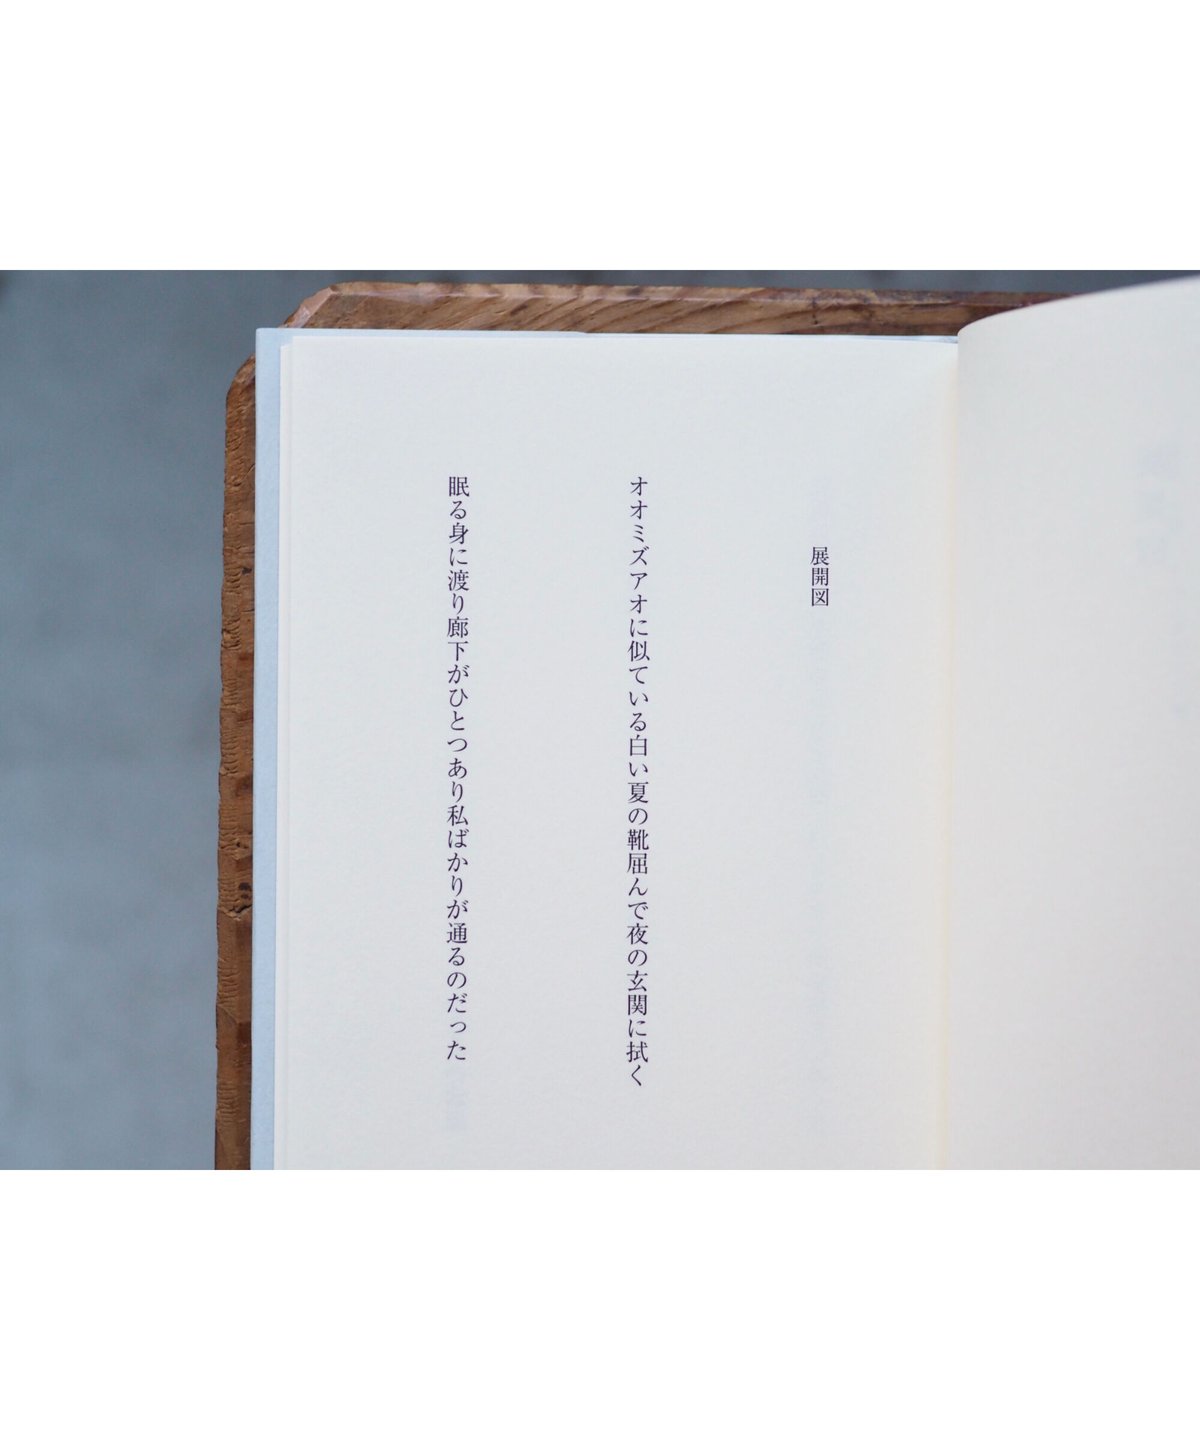 展開図
オオミズアオに似ている白い夏の靴屈んで夜の玄関に拭く
眠る身に渡り廊下がひとつあり私ばかりが通るのだった